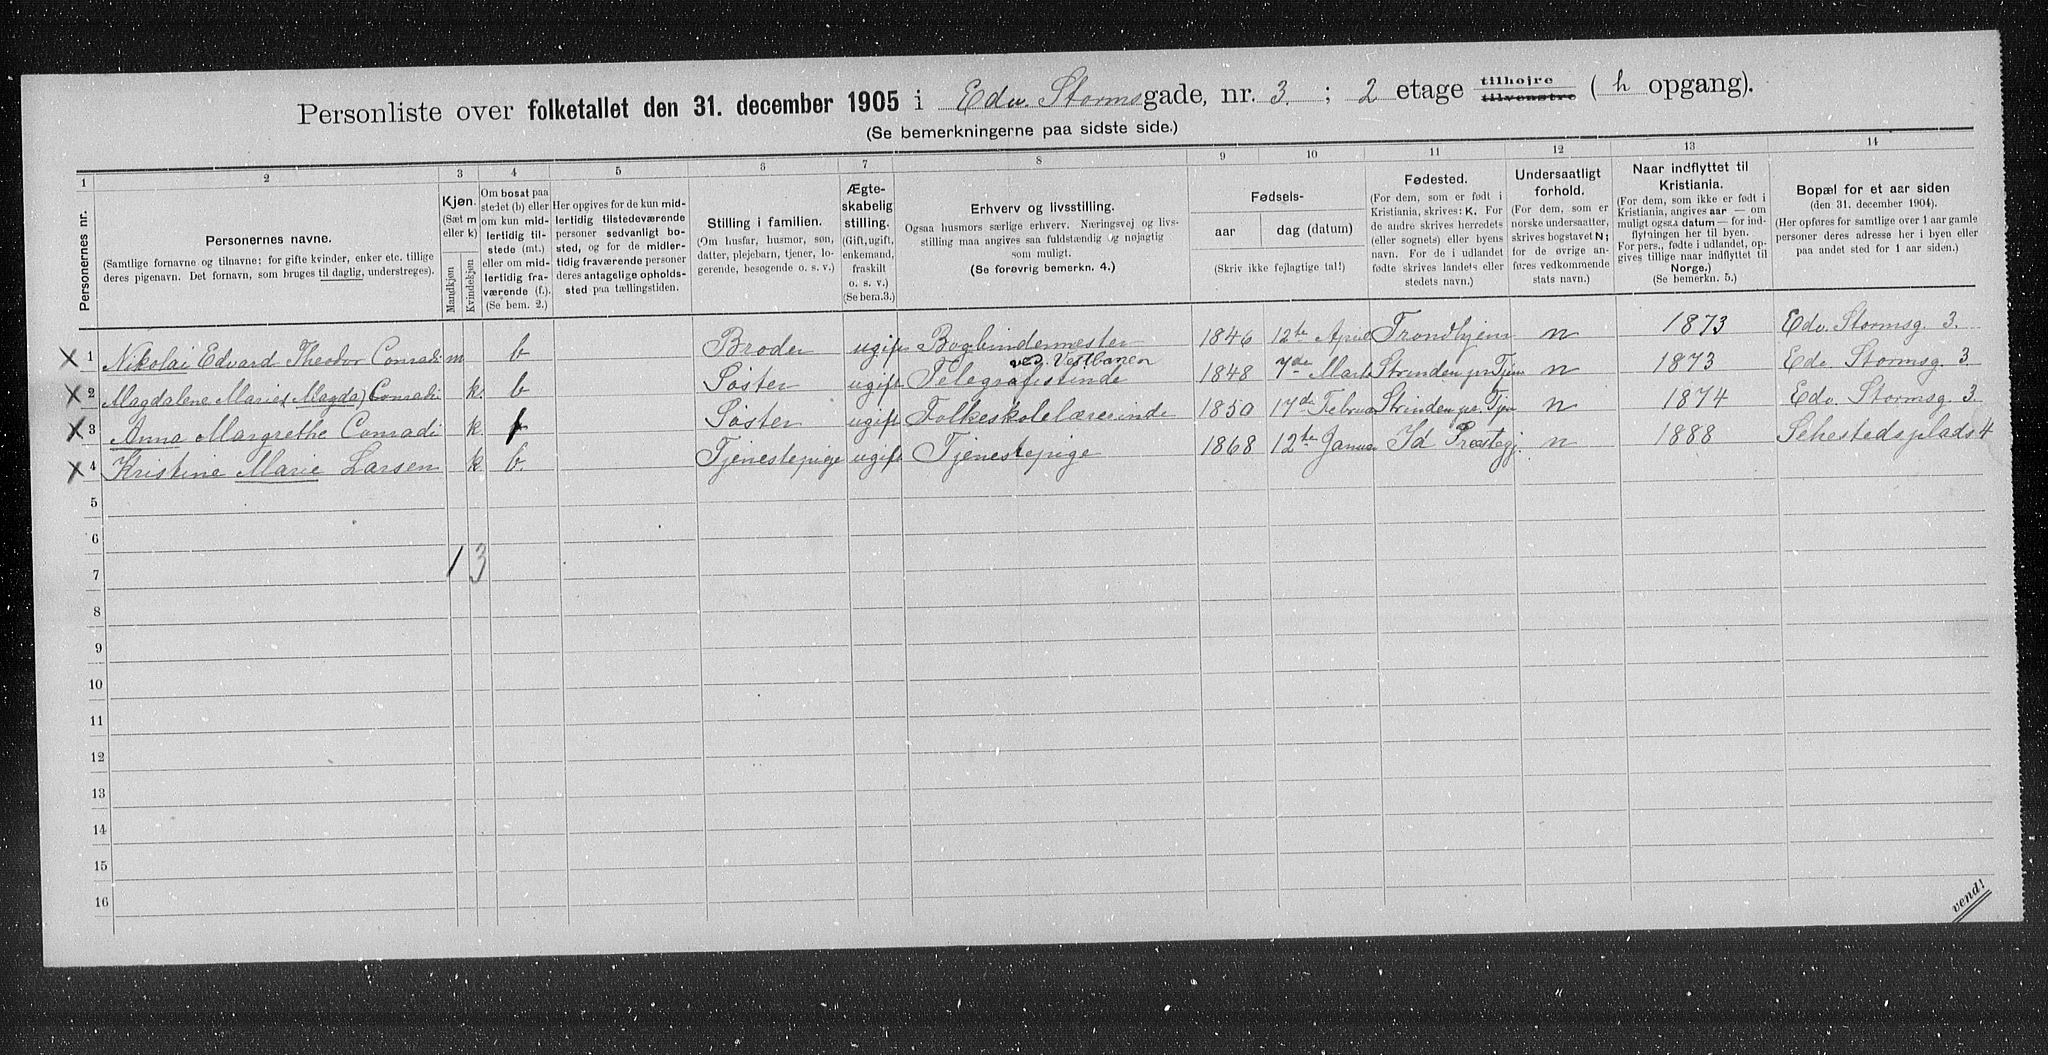 Personliste over folketallet den 31. december 1905 i Edv. Stormsgade, nr. 3. ; 2 etage tilhøjre tilvenstre ( h opgang).
(Se bemerkningerne paa sidste side.)
1 2 3 4 5 6 7 8 9 10 11 12 13 14
Personernes nr.
Personernes navne.
(Samtlige fornavne og tilnavne; for gifte kvinder, enker etc. tillige
deres pigenavn. Det fornavn, som bruges til daglig, understreges).
Kjøn.
(Sæt m
eller k)
Mandkjøn
Kvindekjøn
Om bosat paa
stedet (b) eller
om kun mid-
lertidig til-
stede (mt.)
eller om mid-
lertidig fra-
værende (f.).
(Se bem. 2.)
Her opgives for de kun mid-
lertidig tilstedeværende
personer sedvanligt bo-
sted, og for de midler-
tidig fraværende personer
deres antagelige opholds-
sted paa tællingstiden.
Stilling i familien.
(Om husfar, husmor, søn,
datter, plejebarn, tjener, lo-
gerende, besøgende o. s. v.)
Ægte-
skabelig
stilling.
(Gift, ugift,
enkemand,
fraskilt
o. s. v.)
(Se bem.3.)
Erhverv og livsstilling.
Ogsaa husmors særlige erhverv. Næringsvej og livs-
stilling maa angives saa fuldstændig og nøjagtig
som muligt.
(Se forøvrig bemerkn. 4.)
Fødsels-
aar dag (datum)
(Skriv ikke fejlagtige tal!)
Fødested.
(For dem, som er født i
Kristiania, skrives: K. For
de andre skrives herredets
(eller sognets) eller byens
navn. For de i udlandet
fødte skrives landets eller
stedets navn.)
Undersaatligt
forhold.
(For dem, som er
norske undersaatter,
skrives bogstavet N;
for de øvrige an-
føres vedkommende
stats navn.)
Naar indflyttet til
Kristiania.
(For dem, som ikke er født i
Kristiania, angives aar — om
muligt ogsaa datum — for ind-
flytningen her til byen.
For pers., fødte i udlandet, op-
gives tillige naar indflyttet til
Norge.)
(Se bemerkn. 5.)
Bopæl for et aar siden
(den 31. december 1904).
(Her opføres for samtlige over 1 aar gamle
personer deres adresse her i byen eller
paa andet sted for 1 aar siden.)
X 1 Nikolai Edvard Theodor Conradi m b Broder ugift Bogbindermester 1846 12te April Trondhjem n 1873 Edv. Stormsg. 3.
ved Vestbanen
X 2 Magdalene Marie (Magda) Conradi k. b Søster ugift Telegrafistinde 1848 7de Marts Strinden pr. Tjem n 1873 Edv. Stormsg. 3
X 3 Anna Margrethe Conradi k Søster ugift Folkeskolelærerinde 1850 17de Februar Strinden pr. Tjem n 1874 Edv. Stormsg. 3
X 4 Kristine Marie Larsen k b. Tjenestepige ugift Tjenestepige 1868 12te Januar Id Præstegj. n 1888 Sehestedsplads 4
5
6
1 3
7
8
9
10
11
12
13
14
15
16
vend!